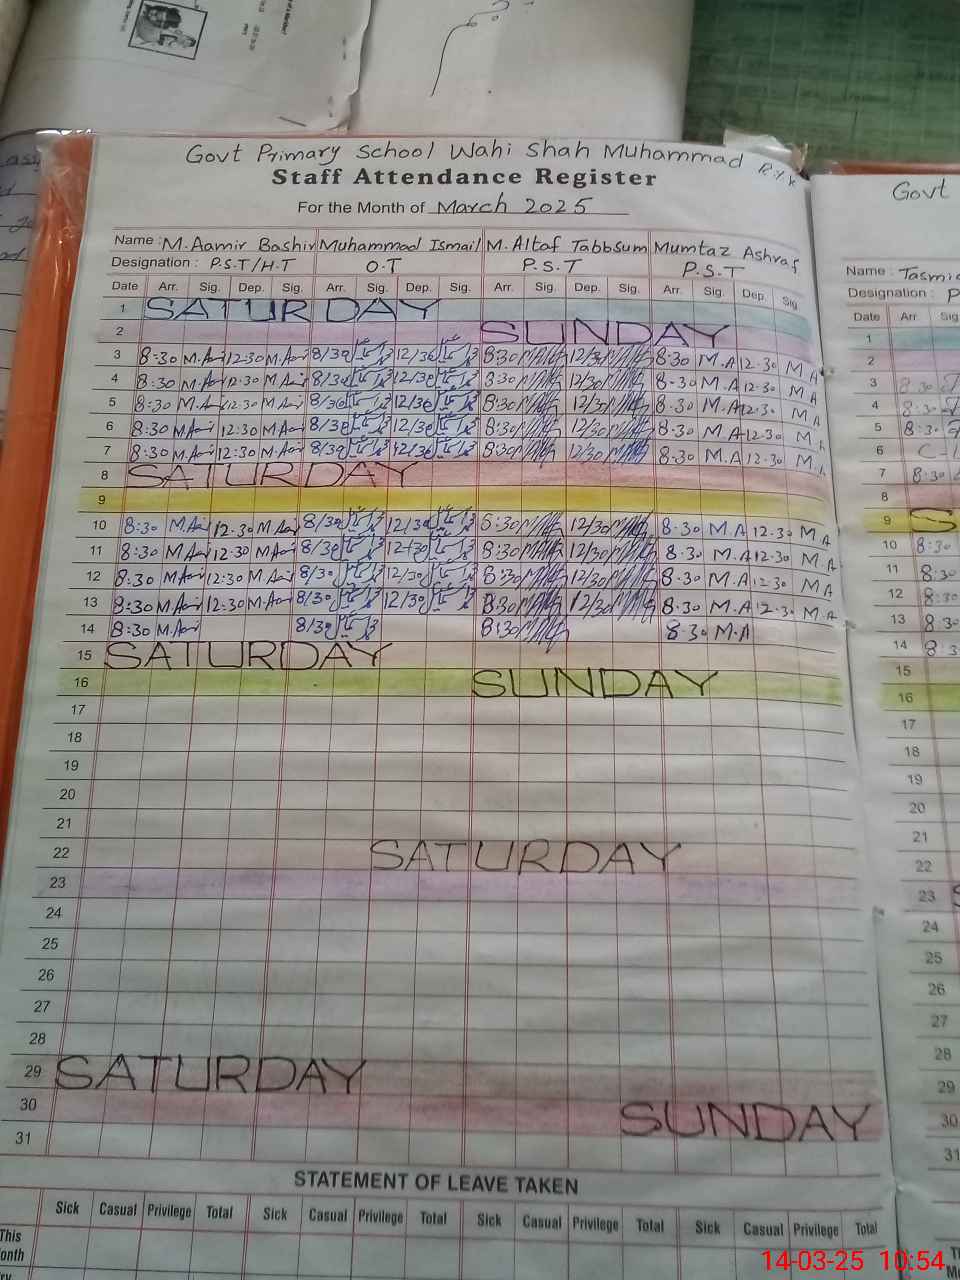 Govt Primary School Wahi Shah Muhammad R.Y.K
Staff Attendance Register
For the Month of March 2025
Name : M.Aamir Bashir Muhammad Ismail M. Altaf Tabbsum Mumtaz Ashraf
Designation : P.S.T/H.T O.T P.S.T P.S.T
Date Arr. Sig. Dep. Sig. Arr. Sig. Dep. Sig. Arr. Sig. Dep. Sig. Arr. Sig. Dep. Sig
1 SATURDAY
2 SUNDAY
3 8:30 12:30 8/30 12/30 8:30 12/30 8:30 M.A 12.30 M.A
4 8:30 12:30 8/30 12/30 8:30 12/30 8:30 M.A 12.30 M.A
5 8:30 12:30 8/30 12/30 8:30 12/30 8:30 M.A 12.30 M.A
6 8:30 12:30 8/30 12/30 8:30 12/30 8:30 M.A 12.30 M.A
7 8:30 12:30 8/30 12/30 8:30 12/30 8:30 M.A 12.30 M.A
8 SATURDAY
9
10 8:30 12:30 8/30 12/30 8:30 12/30 8.30 M.A 12.30 M.A
11 8:30 12:30 8/30 12/30 8:30 12/30 8.30 M.A 12.30 M.A
12 8:30 12:30 8/30 12/30 8:30 12/30 8.30 M.A 12.30 M.A
13 8:30 12:30 8/30 12/30 8:30 12/30 8.30 M.A 12.30 M.A
14 8:30 8/30 8:30 8.30 M.A
15 SATURDAY
16 SUNDAY
17
18
19
20
21
22 SATURDAY
23
24
25
26
27
28
29 SATURDAY
30 SUNDAY
31
STATEMENT OF LEAVE TAKEN
Sick Casual Privilege Total Sick Casual Privilege Total Sick Casual Privilege Total Sick Casual Privilege Total
This
Govt
Name :
Designation : P
Date Arr. Sig
1
2
3 8:30
4 8:30
5 8:30
6
7 8:30
8
9 S
10 8:30
11 8:30
12 8:30
13 8.30
14
15
16
17
18
19
20
21
22
23
24
25
26
27
28
29
30
31
14-03-25 10:54